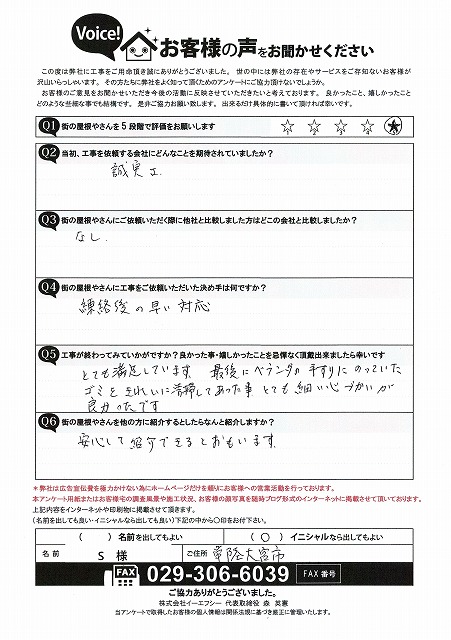 Voice! お客様の声をお聞かせください
この度は弊社に工事をご用命頂き誠にありがとうございました。 世の中には弊社の存在やサービスをご存知ないお客様が
沢山いらっしゃいます。 その方たちに弊社をよく知って頂くためのアンケートにご協力頂けないでしょうか。
お客様のご意見をお聞かせいただき今後の活動に反映させていただきたいと考えております。 良かったこと、嬉しかったこと
どのような些細な事でも結構です。 是非ご協力お願い致します。 出来るだけ具体的に書いて頂ければ幸いです。
Q1 街の屋根やさんを5段階で評価をお願いします ☆1 ☆2 ☆3 ☆4 ★5
Q2 当初、工事を依頼する会社にどんなことを期待されていましたか？
誠実さ
Q3 街の屋根やさんにご依頼いただく際に他社と比較しました方はどこの会社と比較しましたか？
なし.
Q4 街の屋根やさんに工事をご依頼いただいた決め手は何ですか？
練絡後の早い対応
Q5 工事が終わってみていかがですか？良かった事・嬉しかったことを忌憚なく頂戴出来ましたら幸いです
とても満足しています。 最後にベランダの手すりにのっていた
ゴミをきれいに清掃してあった事 とても細い心づかいが
良かったです
Q6 街の屋根やさんを他の方に紹介するとしたらなんと紹介しますか？
安心して紹介できるとおもいます.
＊弊社は広告宣伝費を極力かけない為にホームページだけを頼りにお客様への営業活動を行っております。
本アンケート用紙またはお客様宅の調査風景や施工状況、お客様の顔写真を随時ブログ形式のインターネットに掲載させて頂いております。
上記内容をインターネットや印刷物に掲載させて頂きます。
(名前を出しても良い・イニシャルなら出しても良い)下記の中から〇印をお付下さい。
( ) 名前を出してもよい ( ○ ) イニシャルなら出してもよい
名前 S 様 ご住所 常陸大宮市
FAX 029-306-6039 FAX 番号
ご協力ありがとうございました。
株式会社イーエフシー 代表取締役 森 英憲
当アンケートで取得したお客様の個人情報は関係法規に基づき厳正に管理いたします。